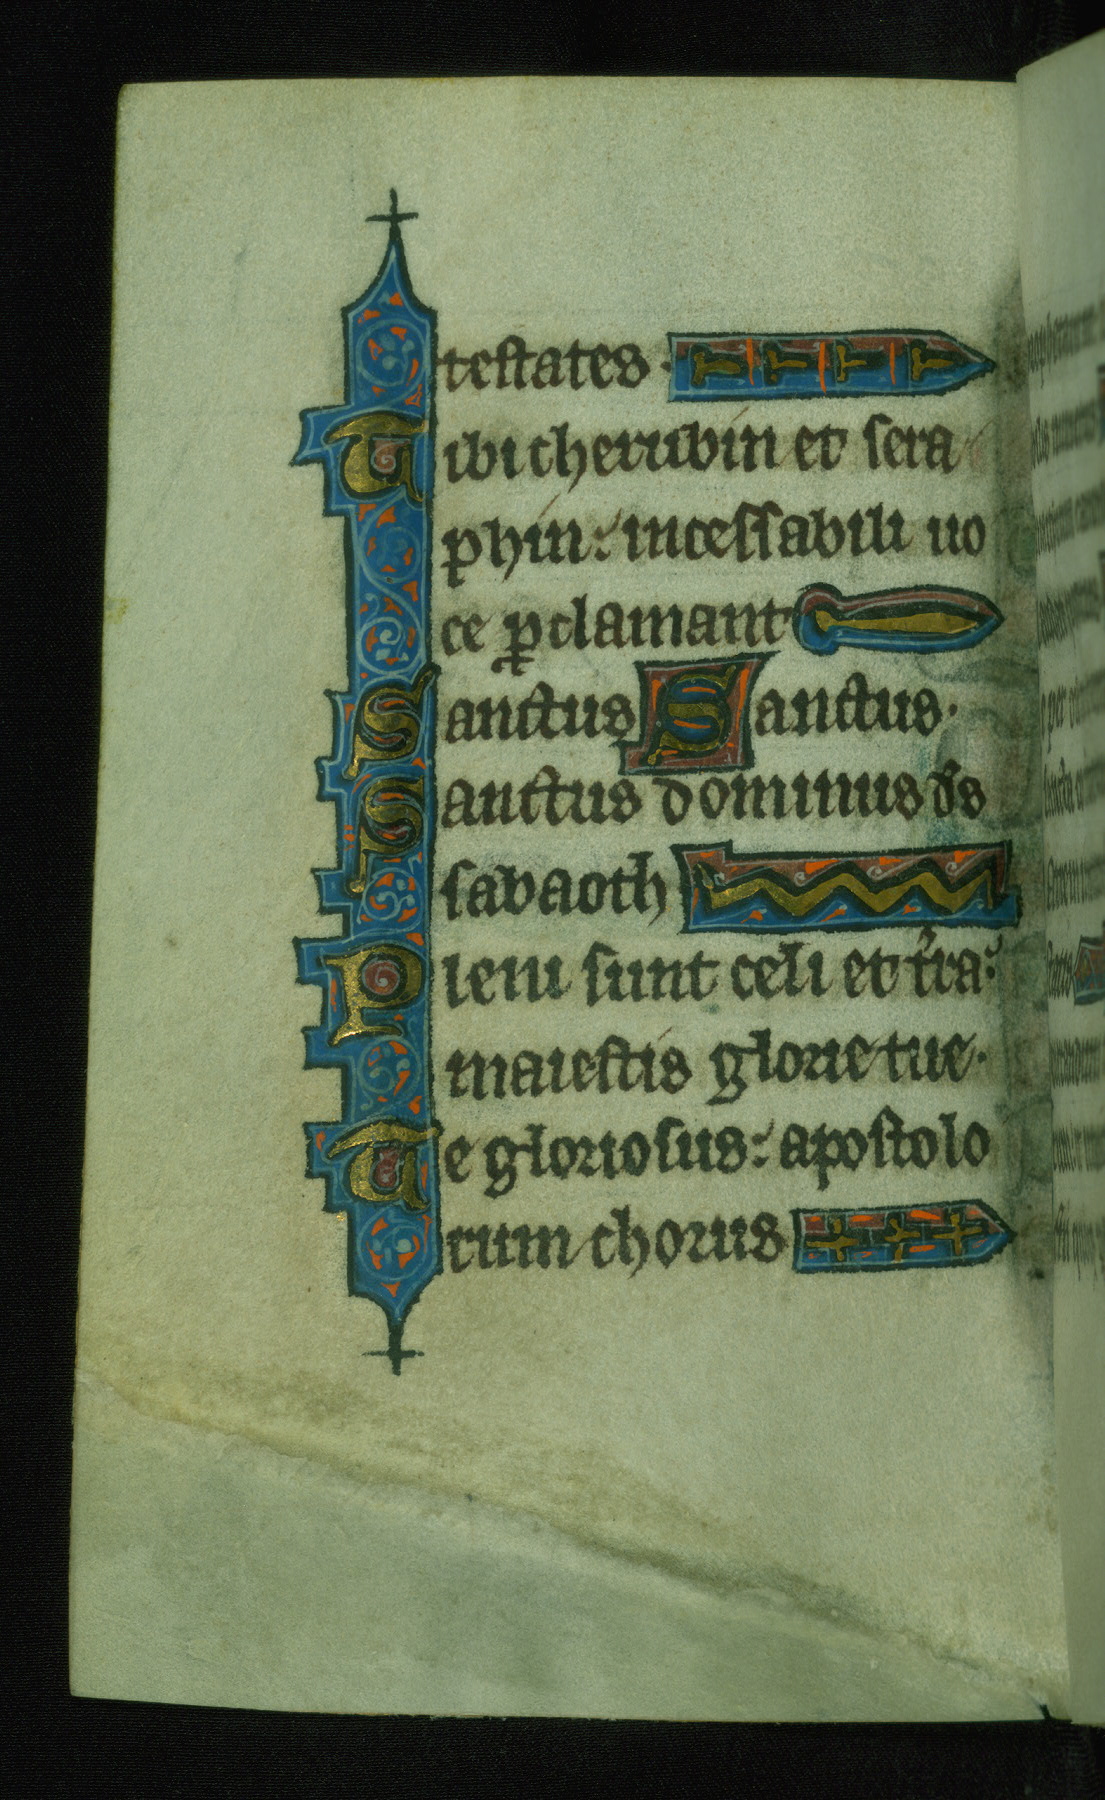 testates·
Tibi cherubin et sera
phin: incessabili uo
ce ꝓclamant
Sanctus Sanctus·
Sanctus dominus ds̄
sabaoth
Pleni sunt celi et tr̄ra:
maiestis glorie tue·
Te gloriosus: apostolo
rum chorus